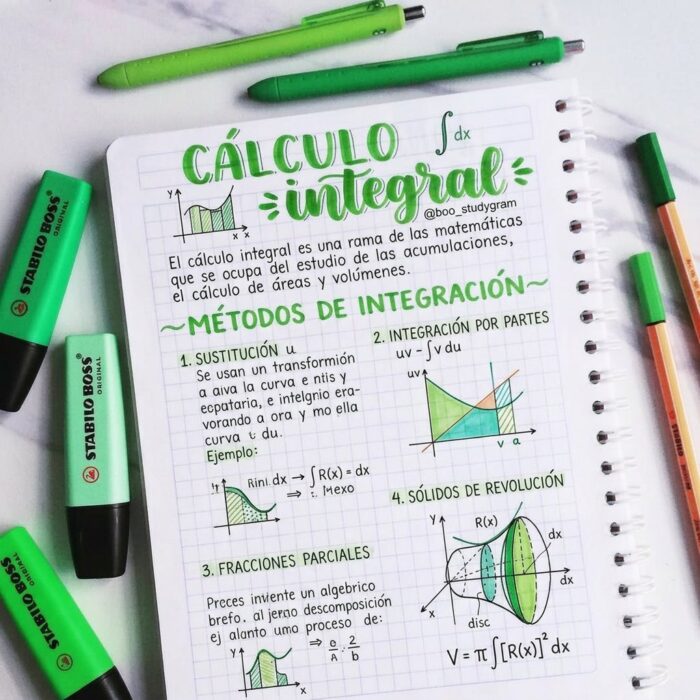 CÁLCULO
∫dx
integral
@boo_studygram
y
x x
El cálculo integral es una rama de las matemáticas
que se ocupa del estudio de las acumulaciones,
el cálculo de áreas y volúmenes.
~MÉTODOS DE INTEGRACIÓN~
1. SUSTITUCIÓN u
Se usan un transformión
a aiva la curva e ntis y
ecpataria, e intelgnio era-
vorando a ora y mo ella
curva du.
Ejemplo:
Rini dx → ∫R(x) = dx
⇒ Mexo
2. INTEGRACIÓN POR PARTES
uv - ∫v du
uv
v a
3. FRACCIONES PARCIALES
Preces inviente un algebrico
brefo. al jerno descomposición
ej alanto umo proceso de:
⇒
y
4. SÓLIDOS DE REVOLUCIÓN
y
R(x)
dx
dx
x
disc
V = π∫[R(x)]² dx
STABILO BOSS
ORIGINAL
STABILO BOSS
ORIGINAL
STABILO BOSS
ORIGINAL